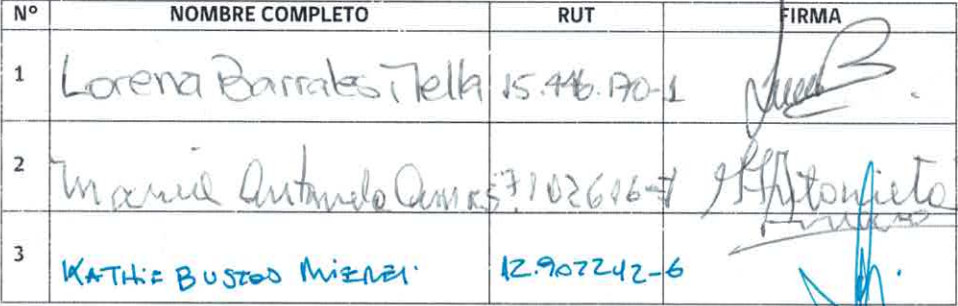 Nº NOMBRE COMPLETO RUT FIRMA
1 Lorena Barrales 15.446.170-1
2 Maria Antonieta 7.102616-7 MAntonieta
3 KATHIE BUSTOS 12.907242-6